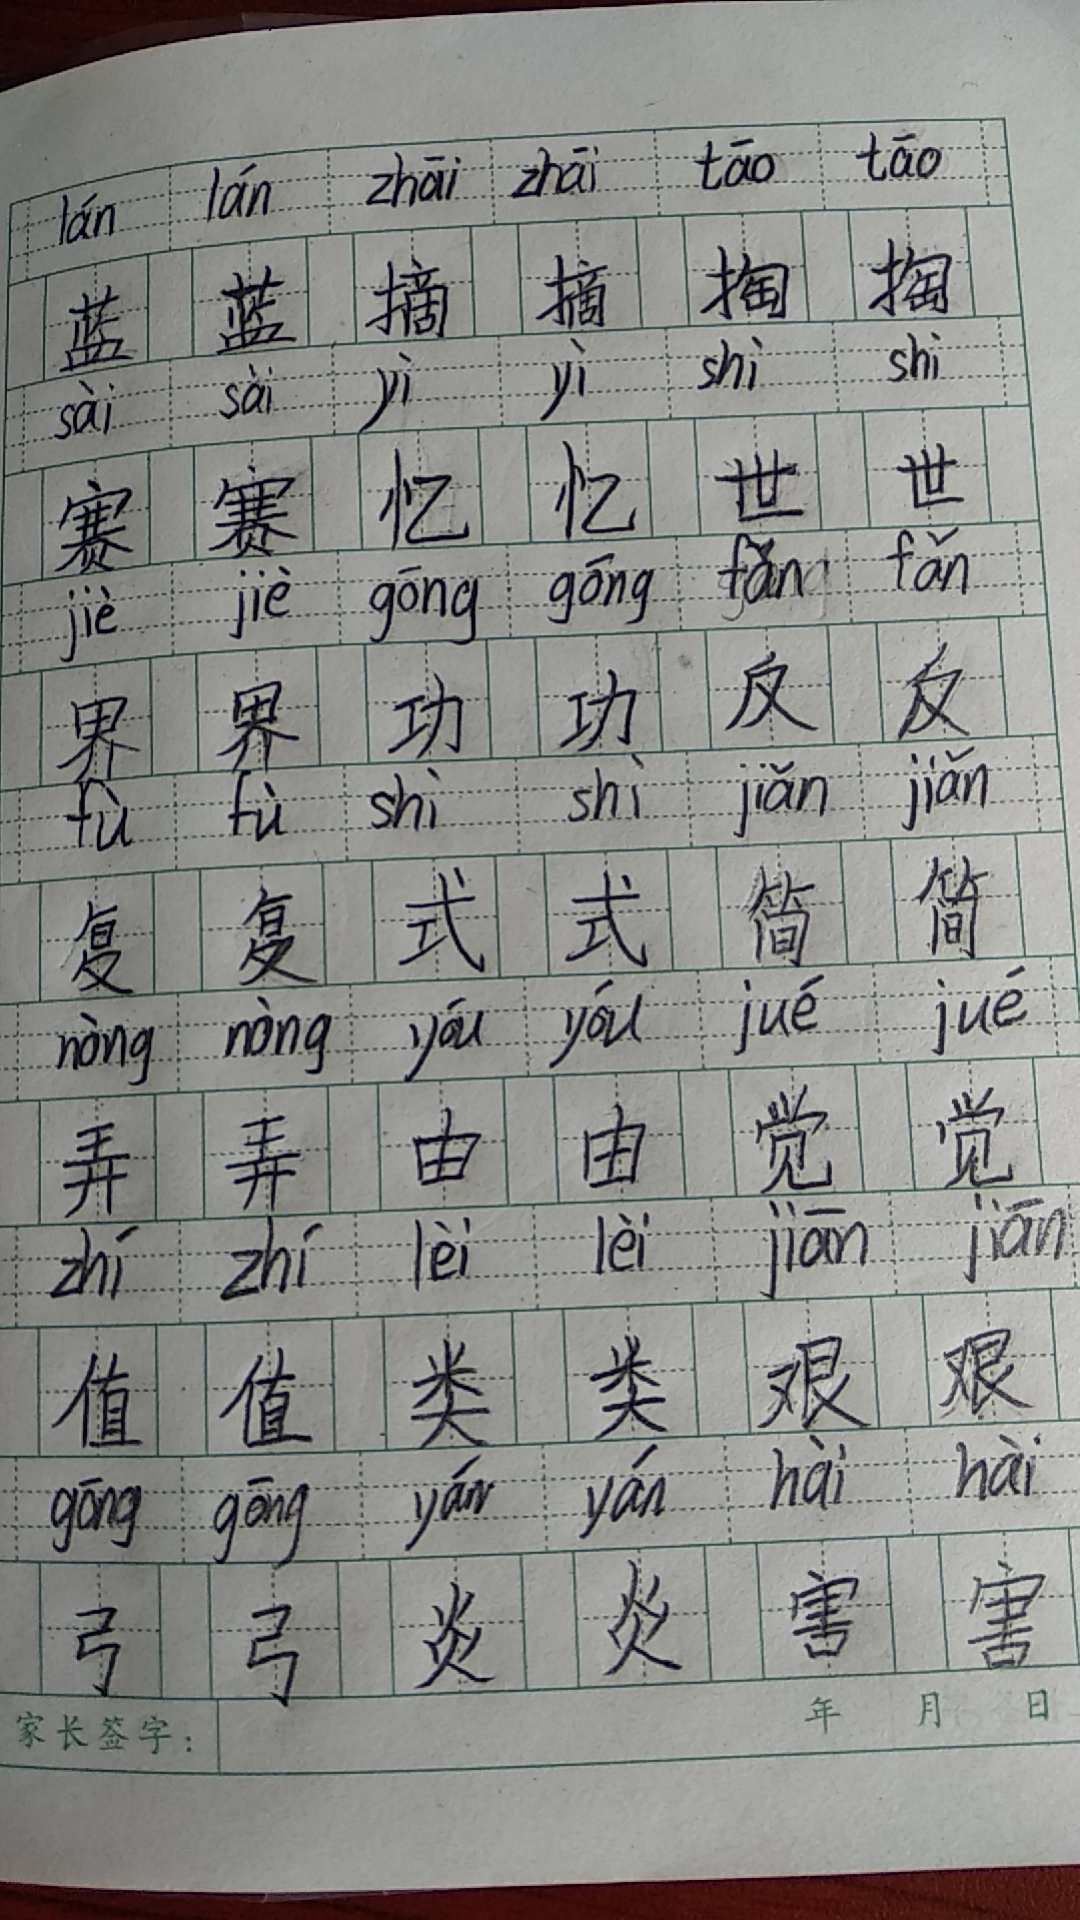 lán lán zhāi zhāi tāo tāo
蓝 蓝 摘 摘 掏 掏
sài sài yì yì shì shì
赛 赛 忆 忆 世 世
jiè jiè gōng gōng fǎn fǎn
界 界 功 功 反 反
fù fù shì shì jiǎn jiǎn
复 复 式 式 简 简
nòng nòng yóu yóu jué jué
弄 弄 由 由 觉 觉
zhí zhí lèi lèi jiān jiān
值 值 类 类 艰 艰
gōng gōng yán yán hài hài
弓 弓 炎 炎 害 害
家长签字: 年 月 日